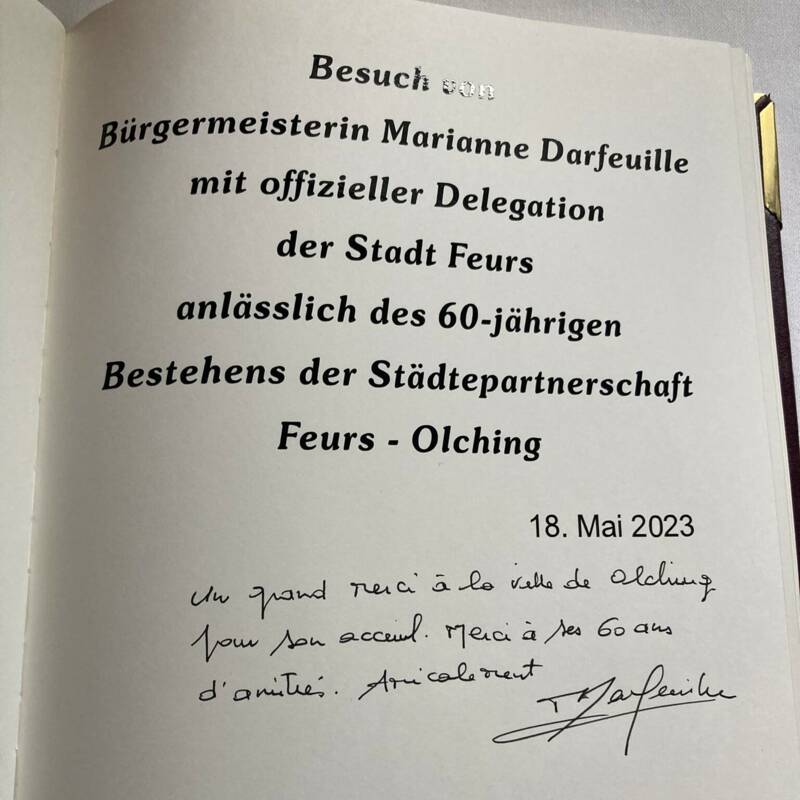 Besuch von
Bürgermeisterin Marianne Darfeuille
mit offizieller Delegation
der Stadt Feurs
anlässlich des 60-jährigen
Bestehens der Städtepartnerschaft
Feurs - Olching
18. Mai 2023
Un grand merci à la ville de Olching
pour son acceuil. Merci à ses 60 ans
d'amitiés. Amicalement
MDarfeuille